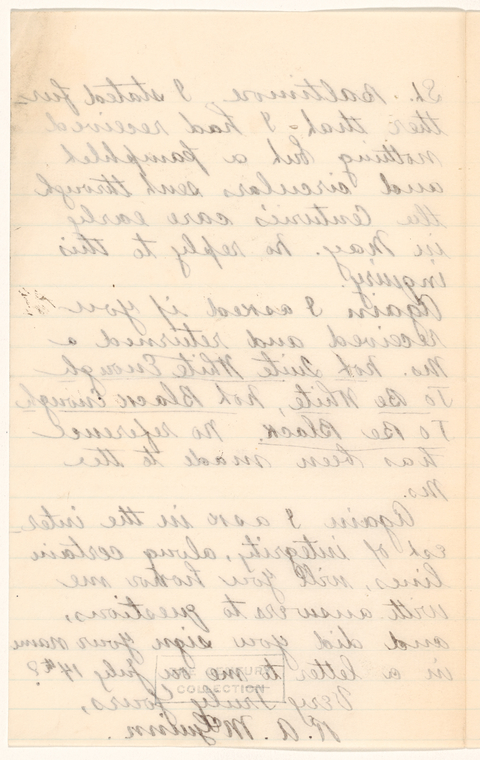 St. Baltimore I stated fur-
ther that I had received
nothing but a pamphlet
and circulars sent through
the Century's care early
in May. No reply to this
inquiry.
Again I asked if you
received and returned a
Ms. Not Quite White Enough
To Be White, Not Black Enough
To Be Black. No reference
has been made to the
Ms.
Again I ask in the inter
est of integrity, along certain
lines, will you honor me
with answers to questions,
and did you sign your name
in a letter to me on July 14th?
Very Truly Yours,
R. A. McGuinn.
COLLECTION